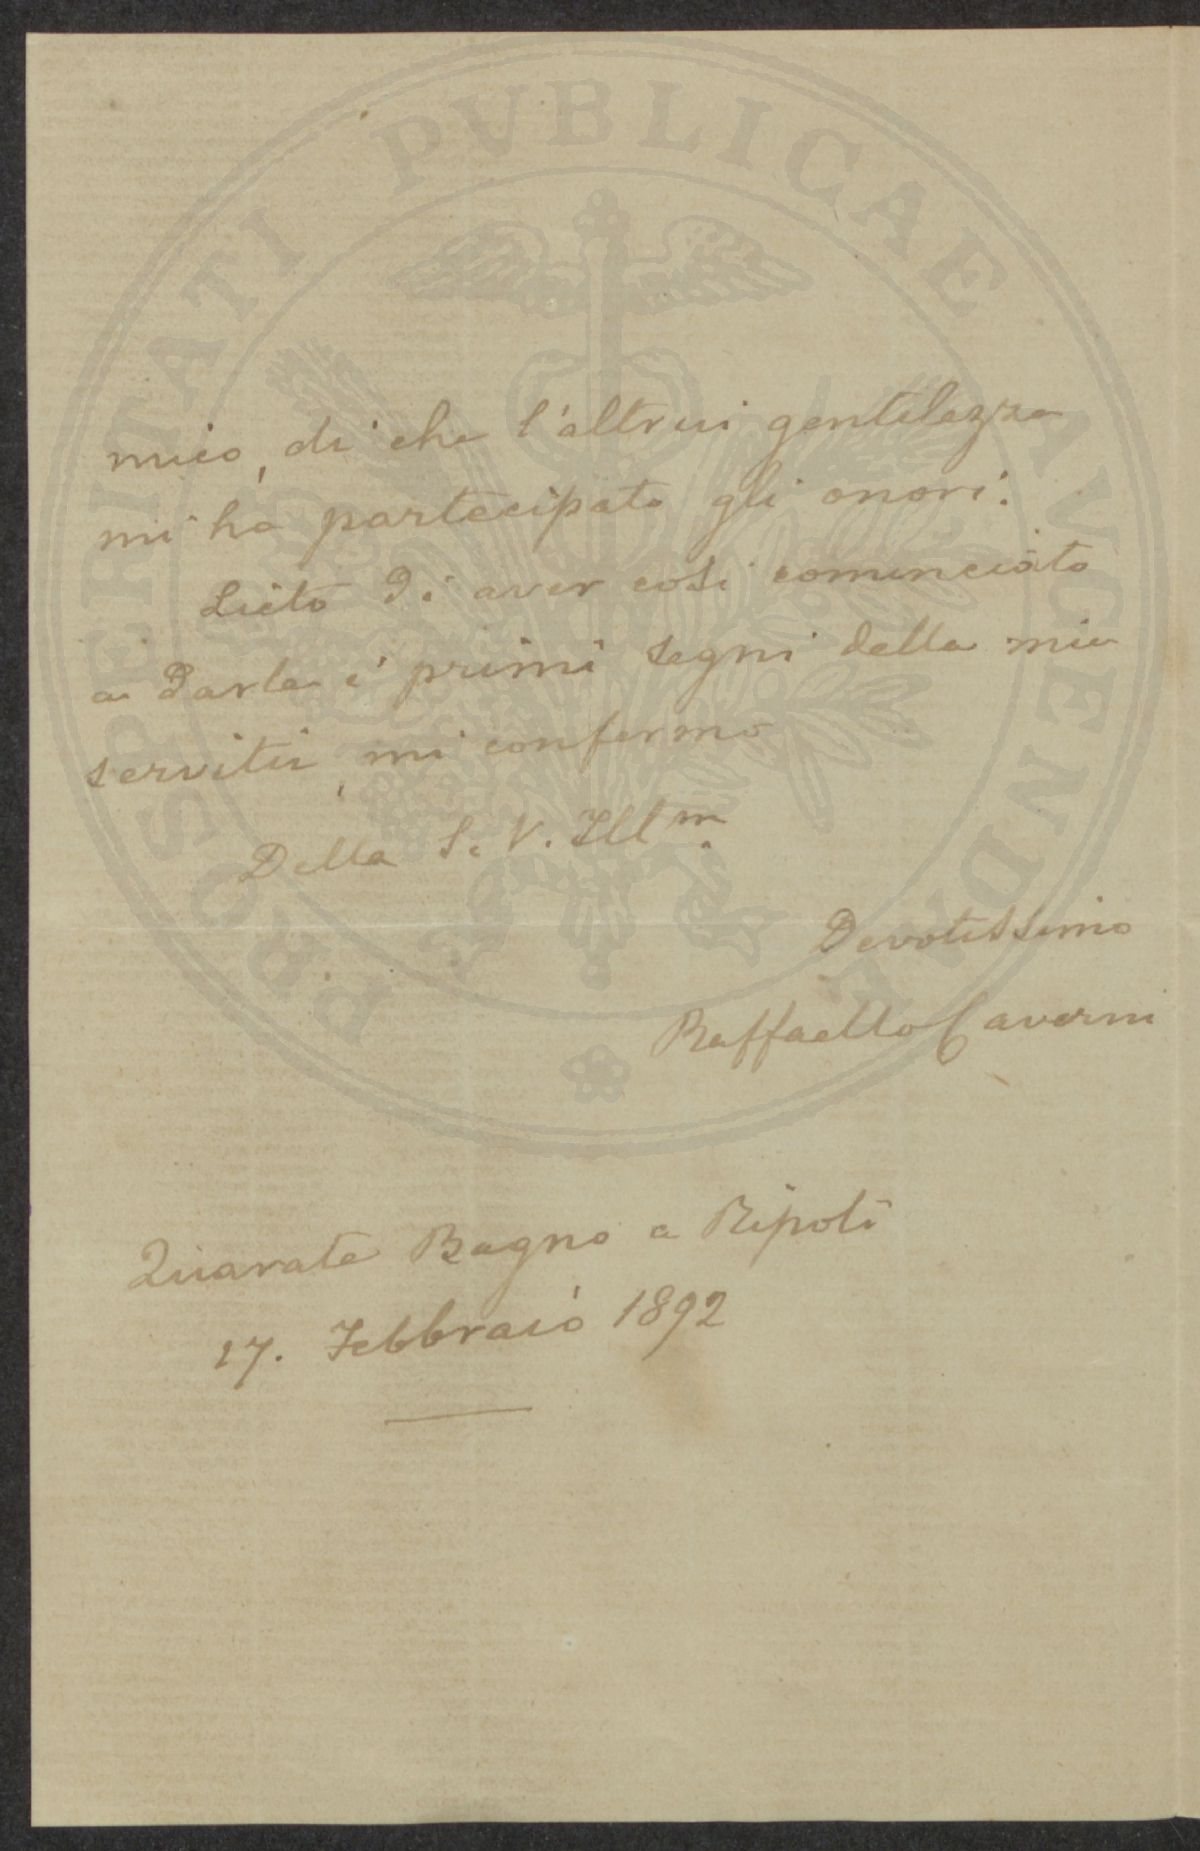 PROSPERITATI PVBLICAE AVGENDAE
mico, di che l'altrui gentilezza
mi ha partecipato gli onori.
Lieto di aver così cominciato
a darle i primi segni della mia
servitù, mi confermo
Della S. V. Ill^m.
Devotissimo
Raffaello Caverni
Quarate Bagno a Ripoli
17. Febbraio 1892